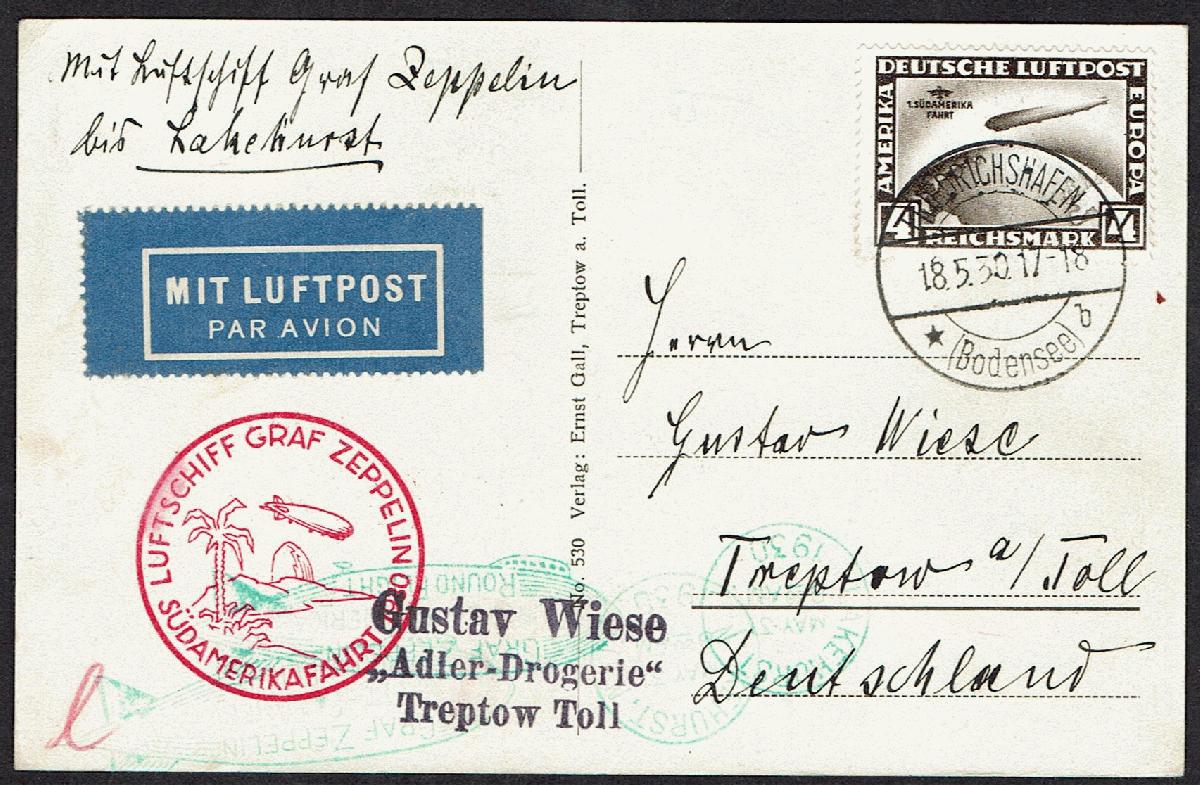 Mit Luftschiff Graf Zeppelin
bis Lakehurst
MIT LUFTPOST
PAR AVION
LUFTSCHIFF GRAF ZEPPELIN
SÜDAMERIKAFAHRT 1930
Gustav Wiese
„Adler-Drogerie“
Treptow Toll
No. 530 Verlag: Ernst Gall, Treptow a. Toll.
DEUTSCHE LUFTPOST
AMERIKA
EUROPA
1. SÜDAMERIKA
FAHRT
4 REICHSMARK M
FRIEDRICHSHAFEN
18.5.30.17-18
(Bodensee) b
Herrn
Gustav Wiese
Treptow a/Toll
Deutschland
1930
MAY
ROUND FLIGHT
GRAF ZEPPELIN
GRAF ZEPPELIN
1930
HURST, N
l